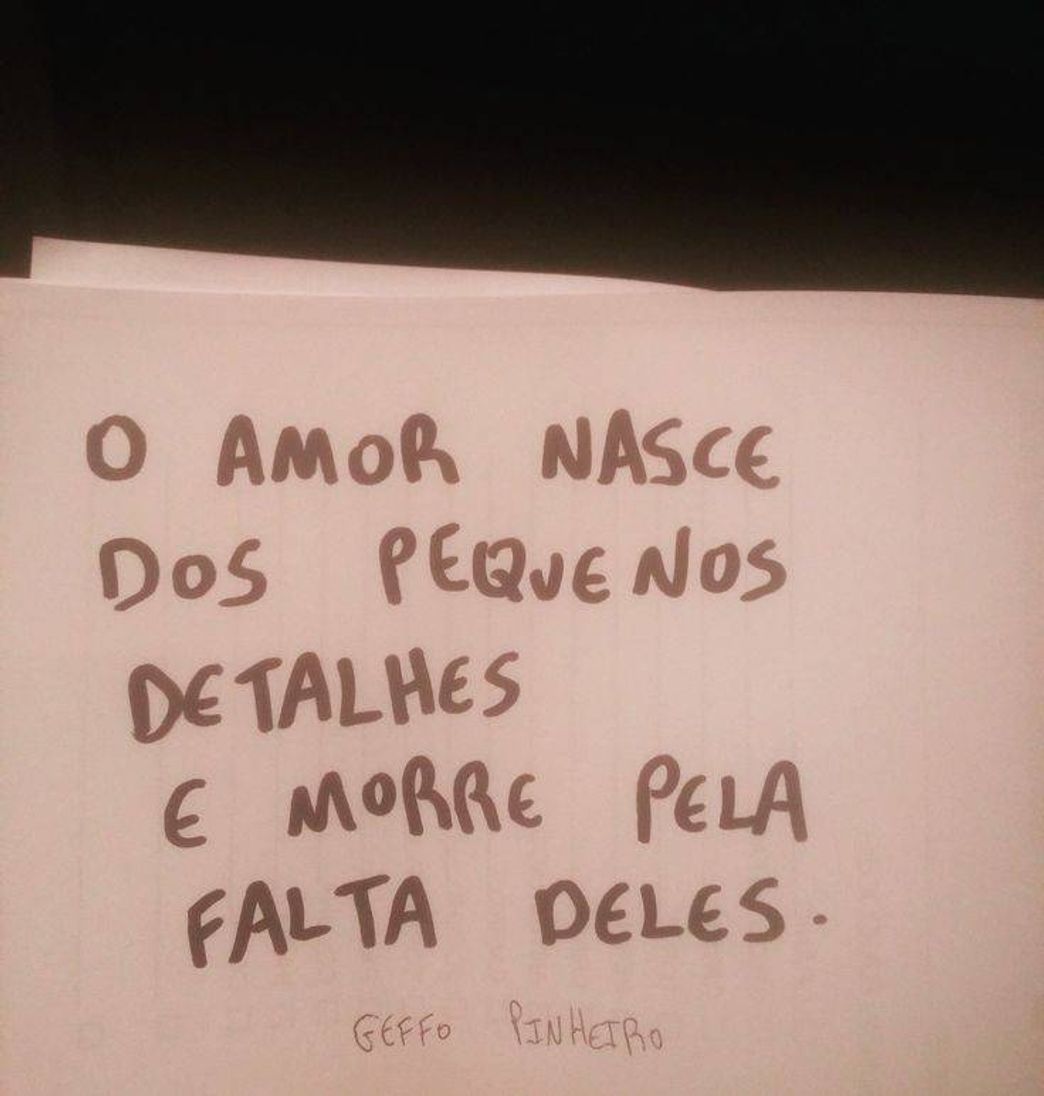 O AMOR NASCE
DOS PEQUENOS
DETALHES
E MORRE PELA
FALTA DELES.
GEFFO PINHEIRO